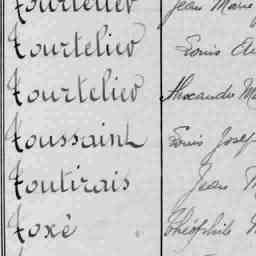 Tourtelier Jean Marie
Tourtelier Louis
Tourtelier Alexandre
Toussaint Louis Josep
Toutirais Jean
Toxé Théophile